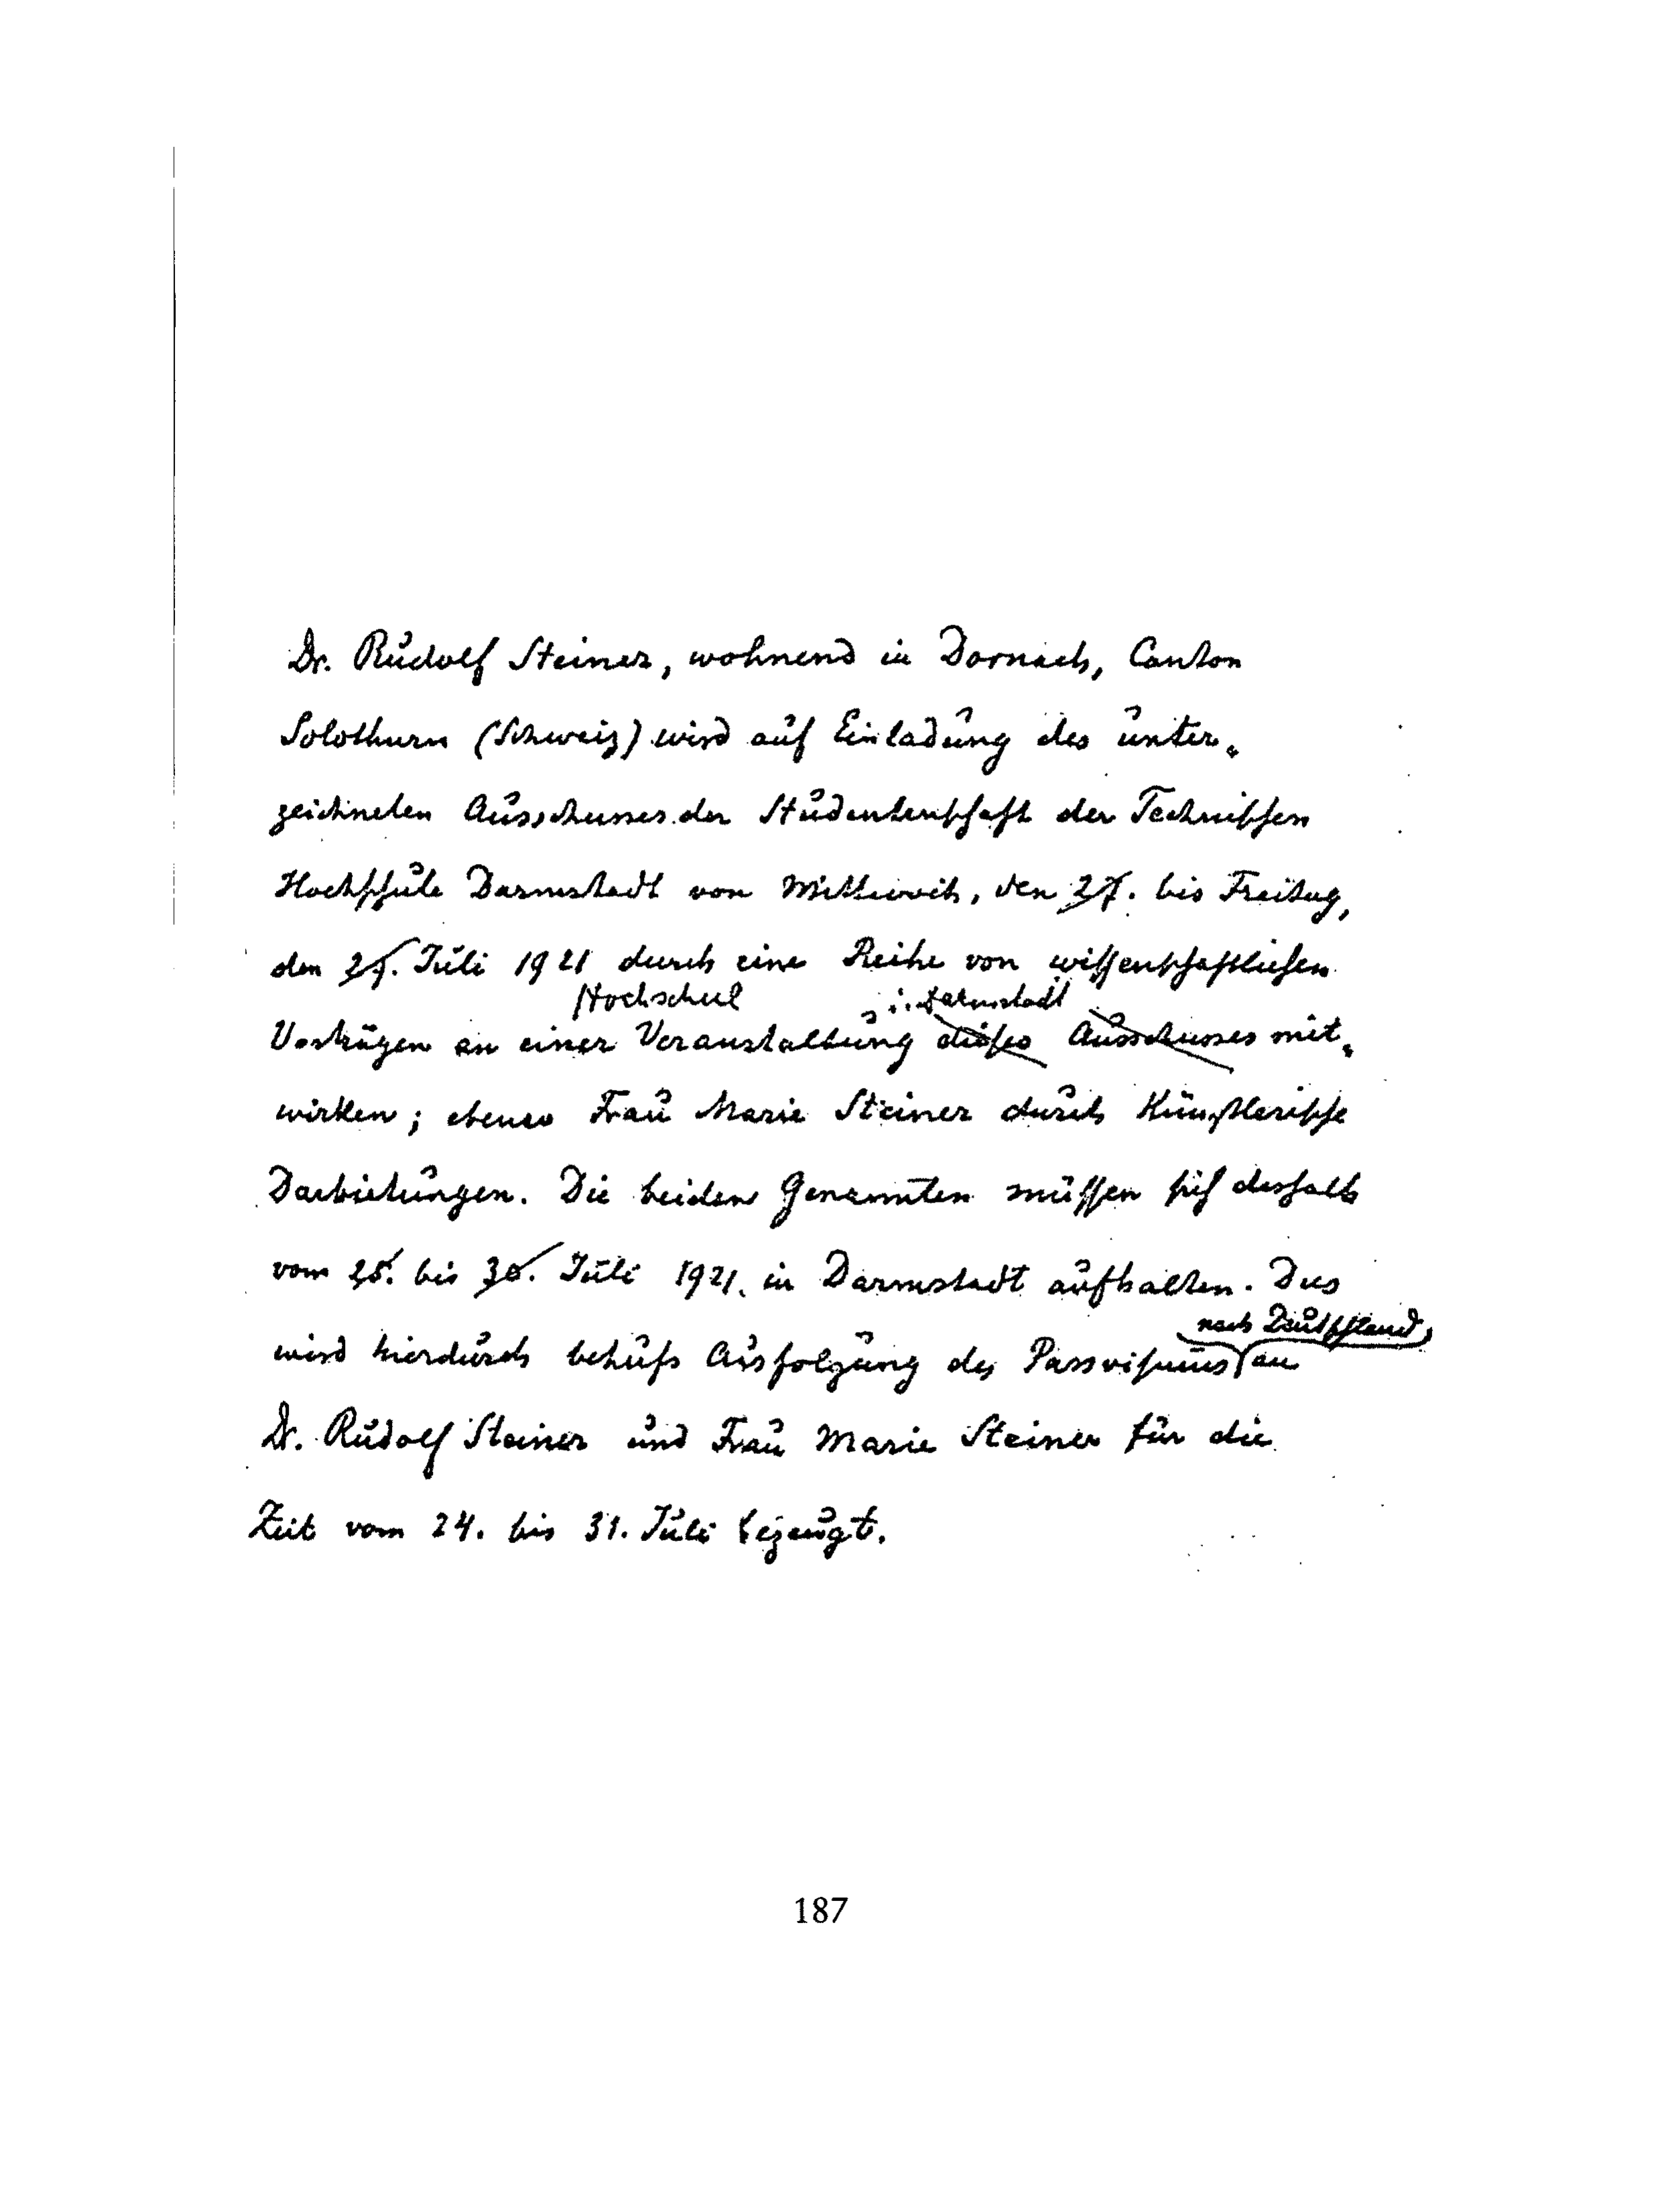 Dr. Rudolf Steiner, wohnend in Dornach, Canton
Solothurn (Schweiz) wird auf Einladung des unter-
zeichneten Ausschusses der Studentenschaft der Technischen
Hochschule Darmstadt von Mittwoch, den 27. bis Freitag,
den 29. Juli 1921 durch eine Reihe von wissenschaftlichen
Hochschul i. Darmstadt
Vorträgen an einer Veranstaltung dieses Ausschusses mit-
wirken; ebenso Frau Marie Steiner durch künstlerische
Darbietungen. Die beiden Genannten müssen sich deshalb
vom 25. bis 30. Juli 1921 in Darmstadt aufhalten. Dies
nach Deutschland
wird hierdurch behufs Ausfolgung des Passvisums an
Dr. Rudolf Steiner und Frau Marie Steiner für die
Zeit vom 24. bis 31. Juli bezeugt.
187